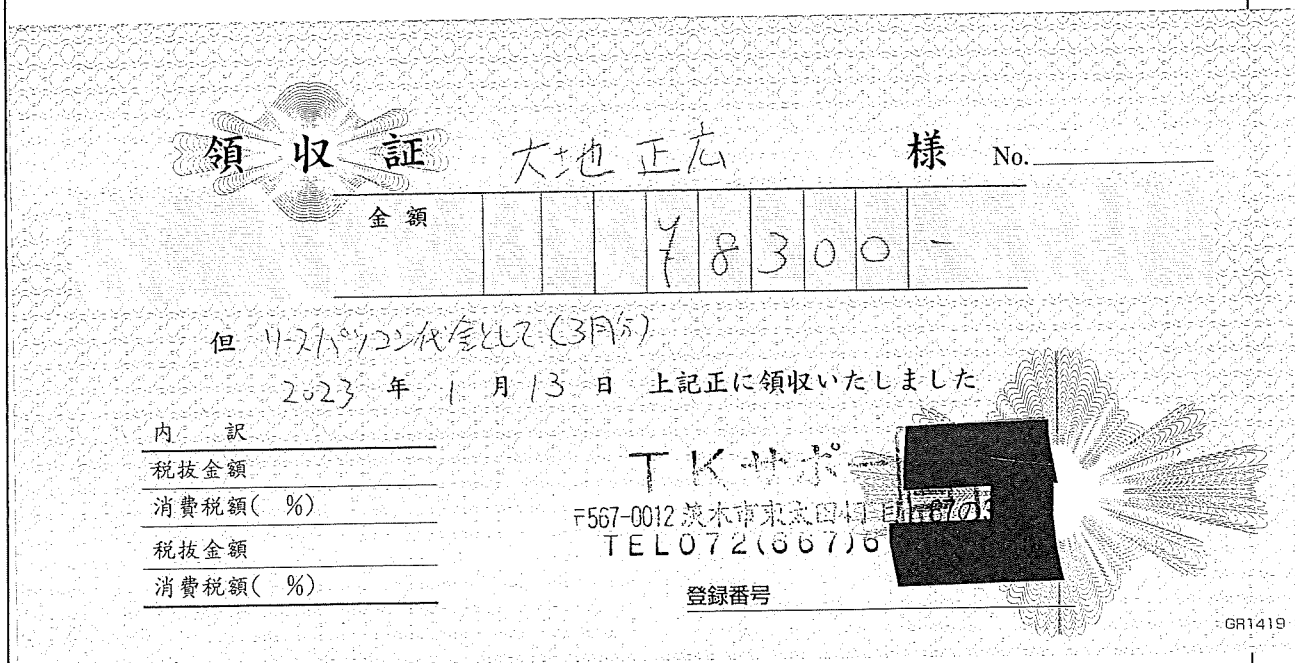 領収証 大地 正広 様 No.
金額 ¥8300-
但 リースパソコン代金として(3月分)
2023年1月13日 上記正に領収いたしました
内訳
税抜金額
消費税額( %)
税抜金額
消費税額( %)
TKサポー
〒567-0012 茨木市東太田4丁目 67の3
TEL072(667)6
登録番号
GR1419